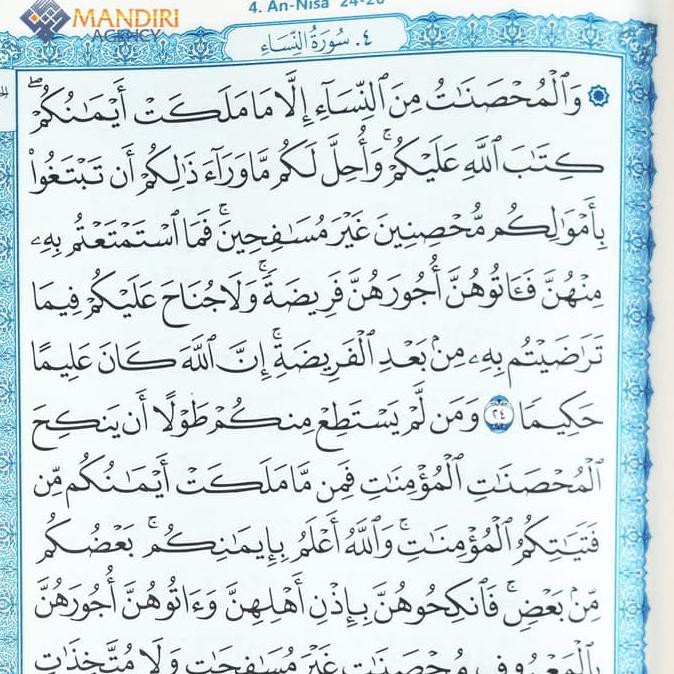 MANDIRI
AGENCY
4. An-Nisa' 24-26
٤. سُورَةُ النِّسَاءِ
۞ وَٱلْمُحْصَنَـٰتُ مِنَ ٱلنِّسَآءِ إِلَّا مَا مَلَكَتْ أَيْمَـٰنُكُمْ ۖ
كِتَـٰبَ ٱللَّهِ عَلَيْكُمْ ۚ وَأُحِلَّ لَكُم مَّا وَرَآءَ ذَٰلِكُمْ أَن تَبْتَغُوا۟
بِأَمْوَٰلِكُم مُّحْصِنِينَ غَيْرَ مُسَـٰفِحِينَ ۚ فَمَا ٱسْتَمْتَعْتُم بِهِۦ
مِنْهُنَّ فَـَٔاتُوهُنَّ أُجُورَهُنَّ فَرِيضَةً ۚ وَلَا جُنَاحَ عَلَيْكُمْ فِيمَا
تَرَٰضَيْتُم بِهِۦ مِنۢ بَعْدِ ٱلْفَرِيضَةِ ۚ إِنَّ ٱللَّهَ كَانَ عَلِيمًا
حَكِيمًا ٢٤ وَمَن لَّمْ يَسْتَطِعْ مِنكُمْ طَوْلًا أَن يَنكِحَ
ٱلْمُحْصَنَـٰتِ ٱلْمُؤْمِنَـٰتِ فَمِن مَّا مَلَكَتْ أَيْمَـٰنُكُم مِّن
فَتَيَـٰتِكُمُ ٱلْمُؤْمِنَـٰتِ ۚ وَٱللَّهُ أَعْلَمُ بِإِيمَـٰنِكُم ۚ بَعْضُكُم
مِّنۢ بَعْضٍ ۚ فَٱنكِحُوهُنَّ بِإِذْنِ أَهْلِهِنَّ وَءَاتُوهُنَّ أُجُورَهُنَّ
بِٱلْمَعْرُوفِ مُحْصَنَـٰتٍ غَيْرَ مُسَـٰفِحَـٰتٍ وَلَا مُتَّخِذَٰتِ